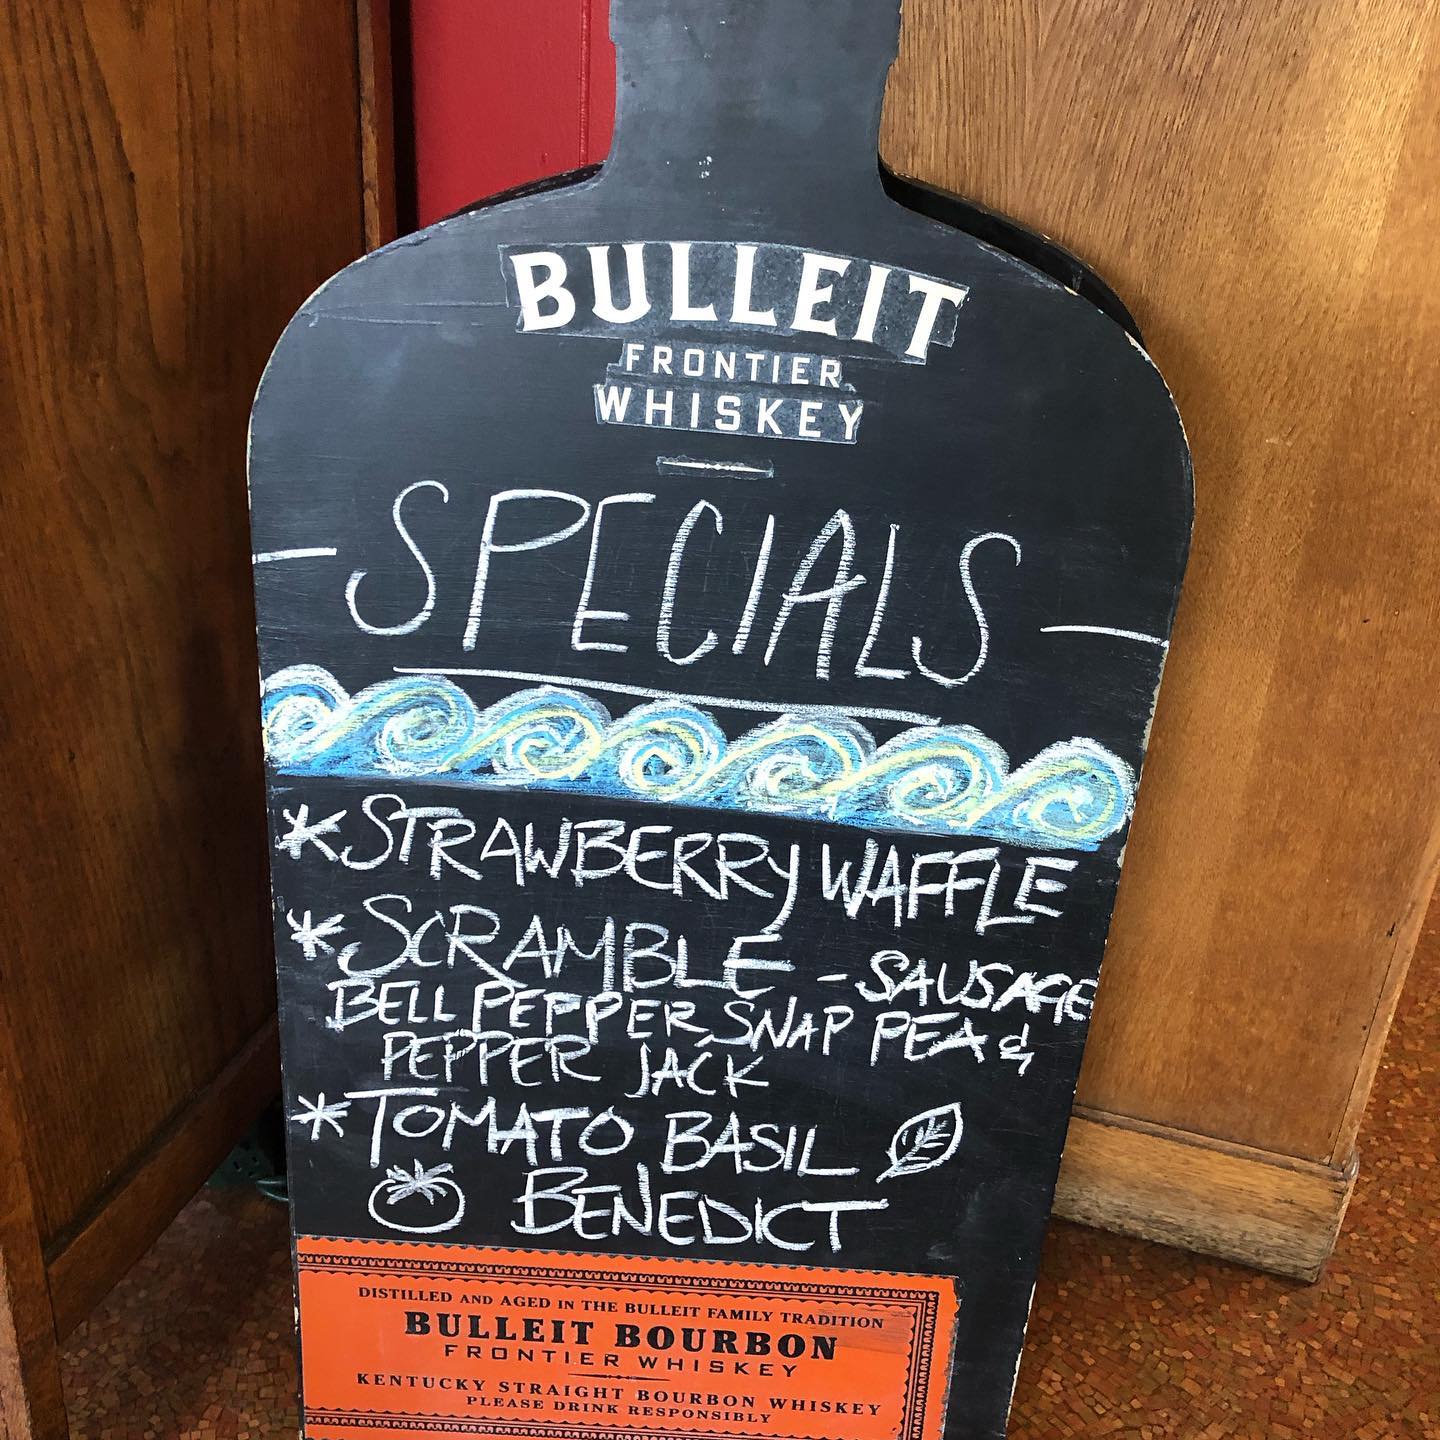 BULLEIT
FRONTIER
WHISKEY
- SPECIALS -
* STRAWBERRY WAFFLE
* SCRAMBLE - SAUSAGE
BELL PEPPER, SNAP PEA &
PEPPER JACK
* TOMATO BASIL
BENEDICT
DISTILLED AND AGED IN THE BULLEIT FAMILY TRADITION
BULLEIT BOURBON
FRONTIER WHISKEY
KENTUCKY STRAIGHT BOURBON WHISKEY
PLEASE DRINK RESPONSIBLY